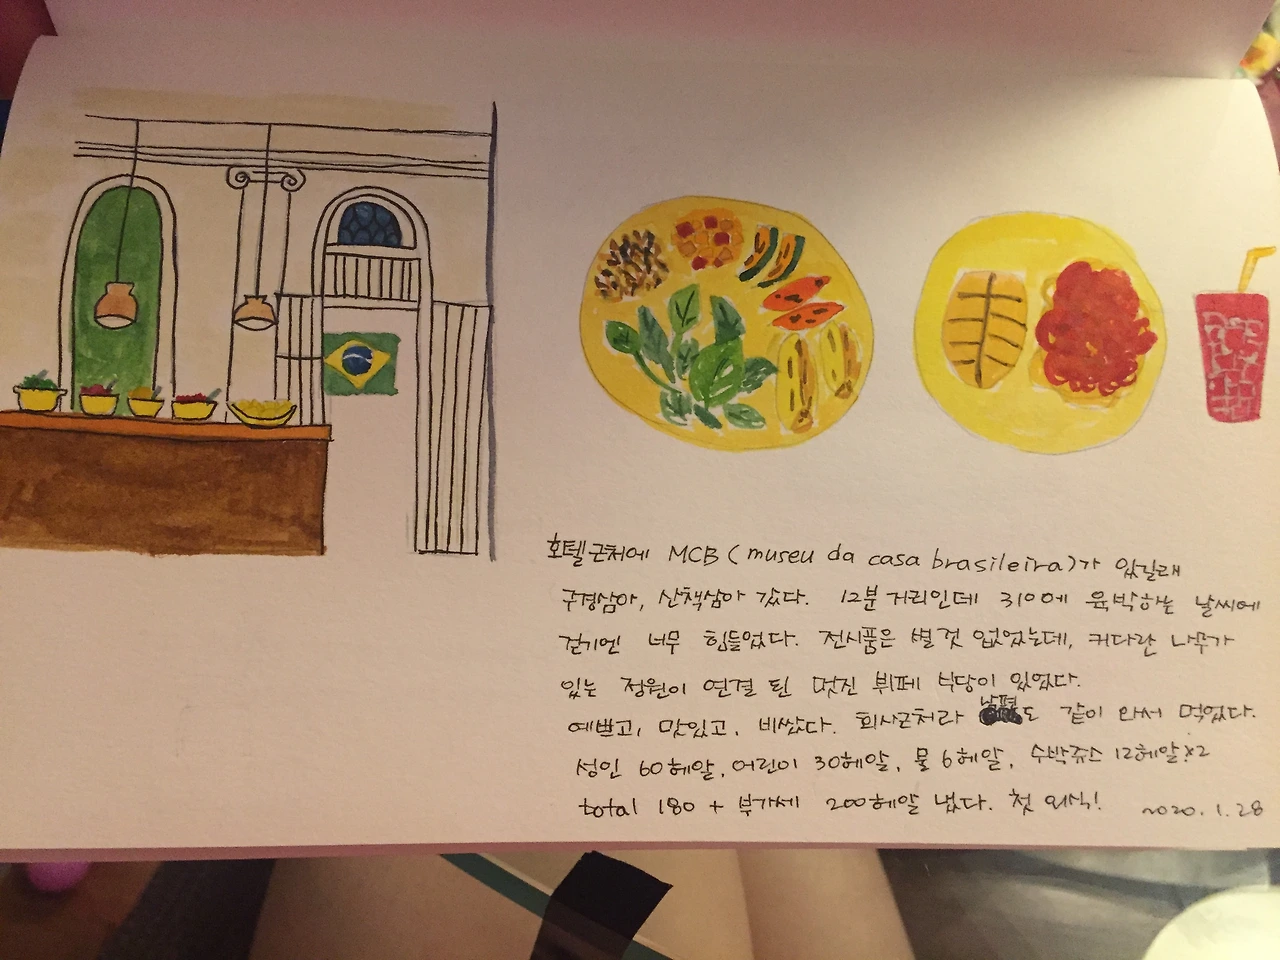 호텔근처에 MCB (museu da casa brasileira)가 있길래
구경삼아, 산책삼아 갔다. 12분거리인데 31º에 육박하는 날씨에
걷기엔 너무 힘들었다. 전시품은 별것 없었는데, 커다란 나무가
있는 정원이 연결 된 멋진 뷔페 식당이 있었다.
예쁘고, 맛있고, 비쌌다. 회사근처라 남편도 같이 와서 먹었다.
성인 60헤알, 어린이 30헤알, 물 6헤알, 수박쥬스 12헤알×2
total 180 + 부가세 200헤알 냈다. 첫 외식!
2020.1.28